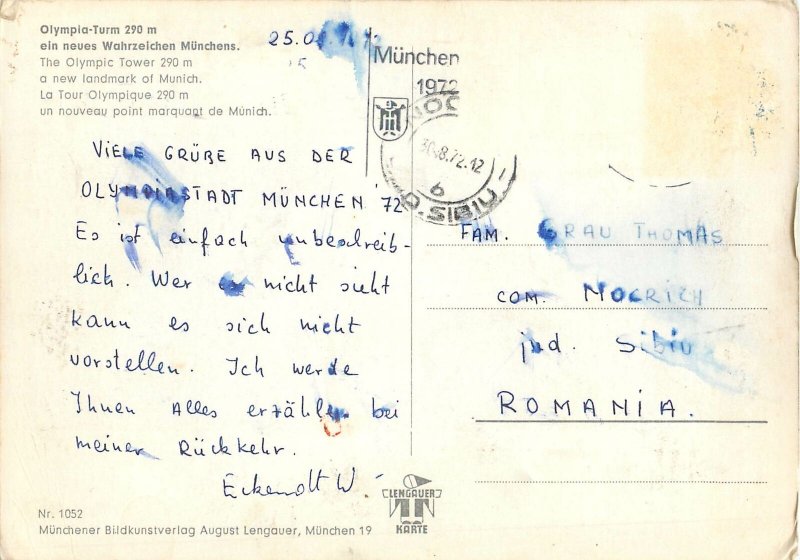 Olympia-Turm 290 m
ein neues Wahrzeichen Münchens.
The Olympic Tower 290 m
a new landmark of Munich.
La Tour Olympique 290 m
un nouveau point marquant de Munich.
25.08.
München
1972
NOC
30.8.72.12
b
D. SIBIU
VIELE GRÜßE AUS DER
OLYMPIASTADT MÜNCHEN '72
Es ist einfach unbeschreib-
lich. Wer es nicht sieht
kann es sich nicht
vorstellen. Ich werde
Ihnen Alles erzählen bei
meiner Rückkehr.
Eckendt W.
FAM. GRAU THOMAS
COM. MOCRICH
jud. Sibiu
ROMANIA.
LENGAUER
KARTE
Nr. 1052
Münchener Bildkunstverlag August Lengauer, München 19